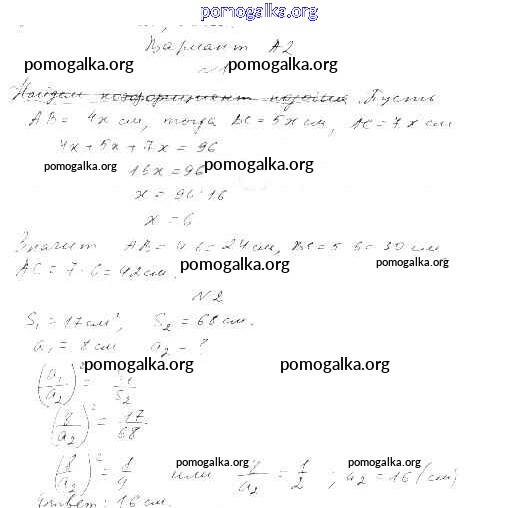 pomogalka.org
Вариант А2
pomogalka.org pomogalka.org
Пусть
AB = 4x см, тогда BC = 5x см, AC = 7x см
4x + 5x + 7x = 96
pomogalka.org 16x = 96 pomogalka.org
x = 96 : 16
x = 6
Значит AB = 4·6 = 24 см, BC = 5·6 = 30 см
AC = 7·6 = 42 см. pomogalka.org pomogalka.org
N2
S₁ = 17 см², S₂ = 68 см.
a₁ = 8 см a₂ - ?
pomogalka.org pomogalka.org
(a₁/a₂)² = S₁/S₂
(8/a₂)² = 17/68.
pomogalka.org pomogalka.org
(8/a₂)² = 1/4 или 8/a₂ = 1/2 ; a₂ = 16 (см)
Ответ: 16 см.